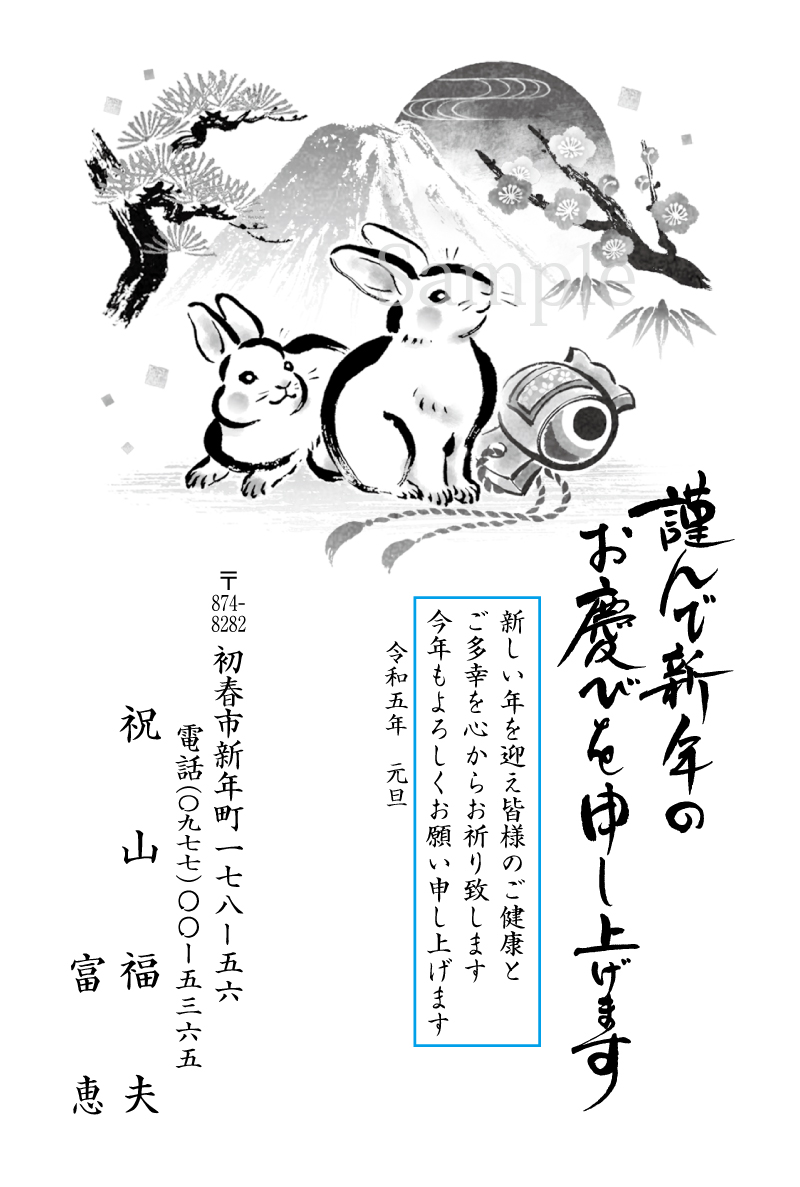 Sample
謹んで新年の
お慶びを申し上げます
新しい年を迎え皆様のご健康と
ご多幸を心からお祈り致します
今年もよろしくお願い申し上げます
令和五年　元旦
〒874-8282 初春市新年町一七八ー五六
電話(〇九七七)〇〇ー五三六五
祝山福夫
富恵